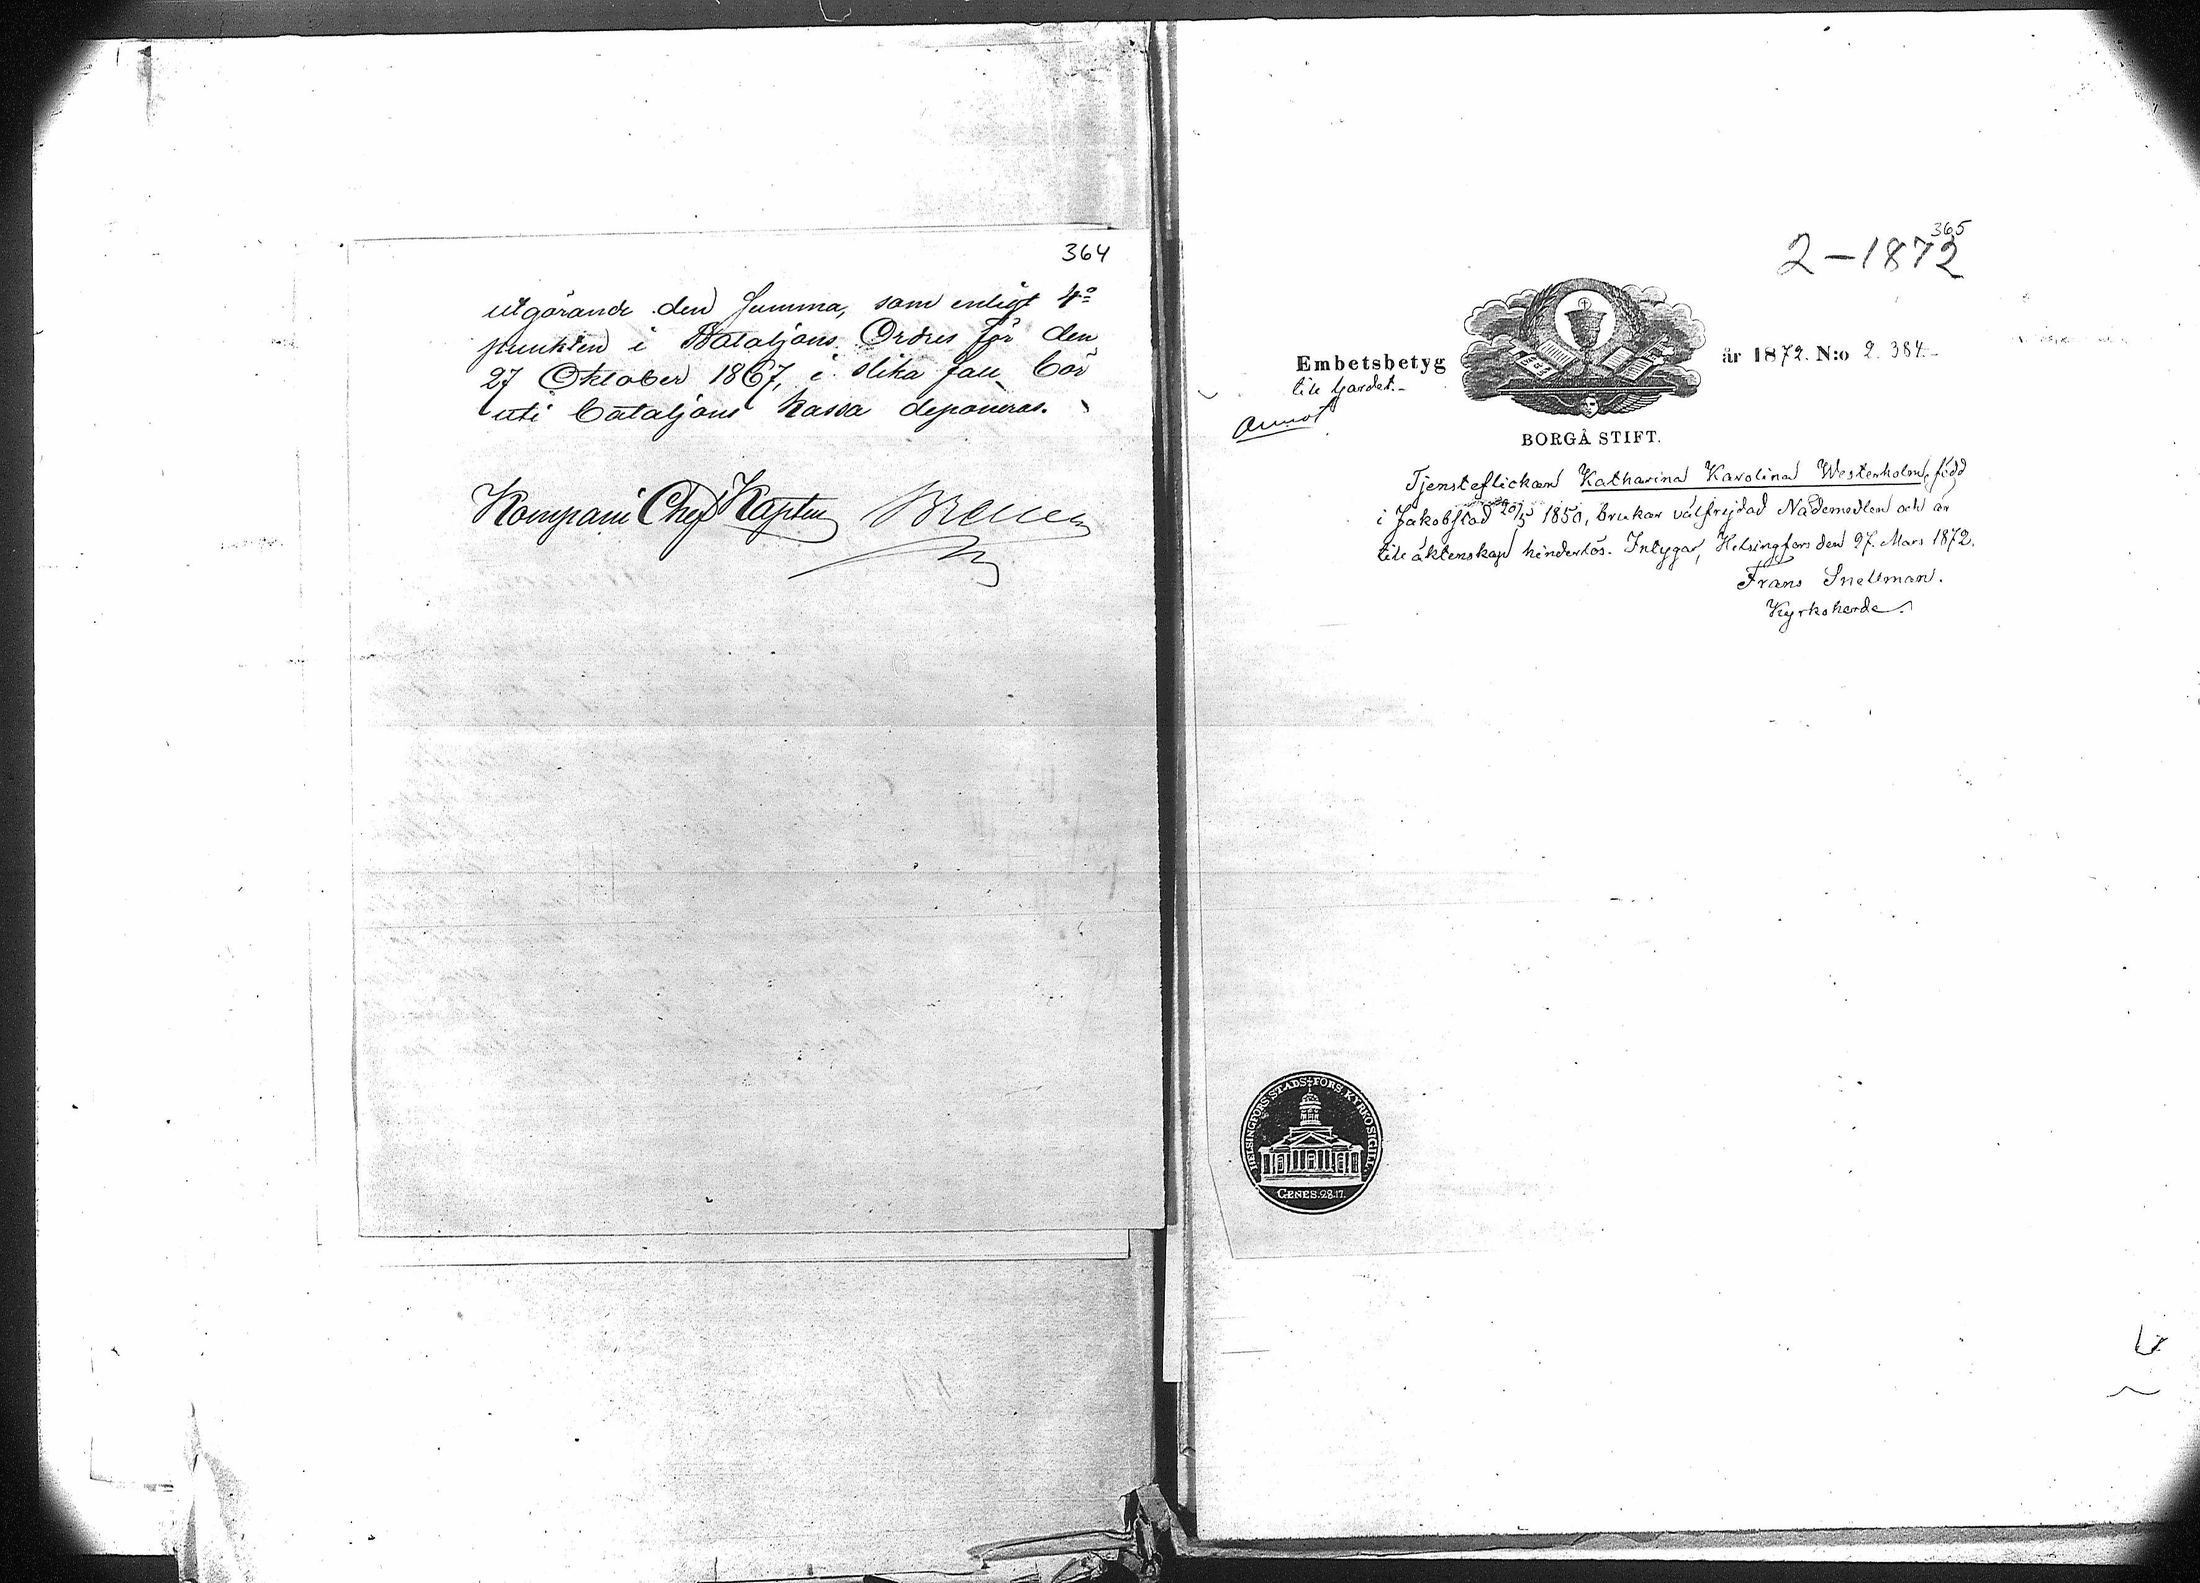 364
utgörande den summa, som enligt 4o
punkten i Bataljons Ordres för den
27 Oktober 1867, i slika fall bör
uti bataljons kassa deponeras.
Kompani Chef Kapten
365
2-1872
Embetsbetyg år 1872. N:o 2.384.
till Gardet.
BORGÅ STIFT.
Tjensteflickan Katharina Karolina Westerholm, född
i Jakobstad 20/5 1850, brukar välfrejdad Nådemedlen och är
till äktenskap hinderlös. Intygar, Helsingfors den 27. Mars 1872.
Frans Snellman.
Kyrkoherde.
HELSINGFORS STADS FÖRS. KYRKOSIGILL.
GENES. 28.17.